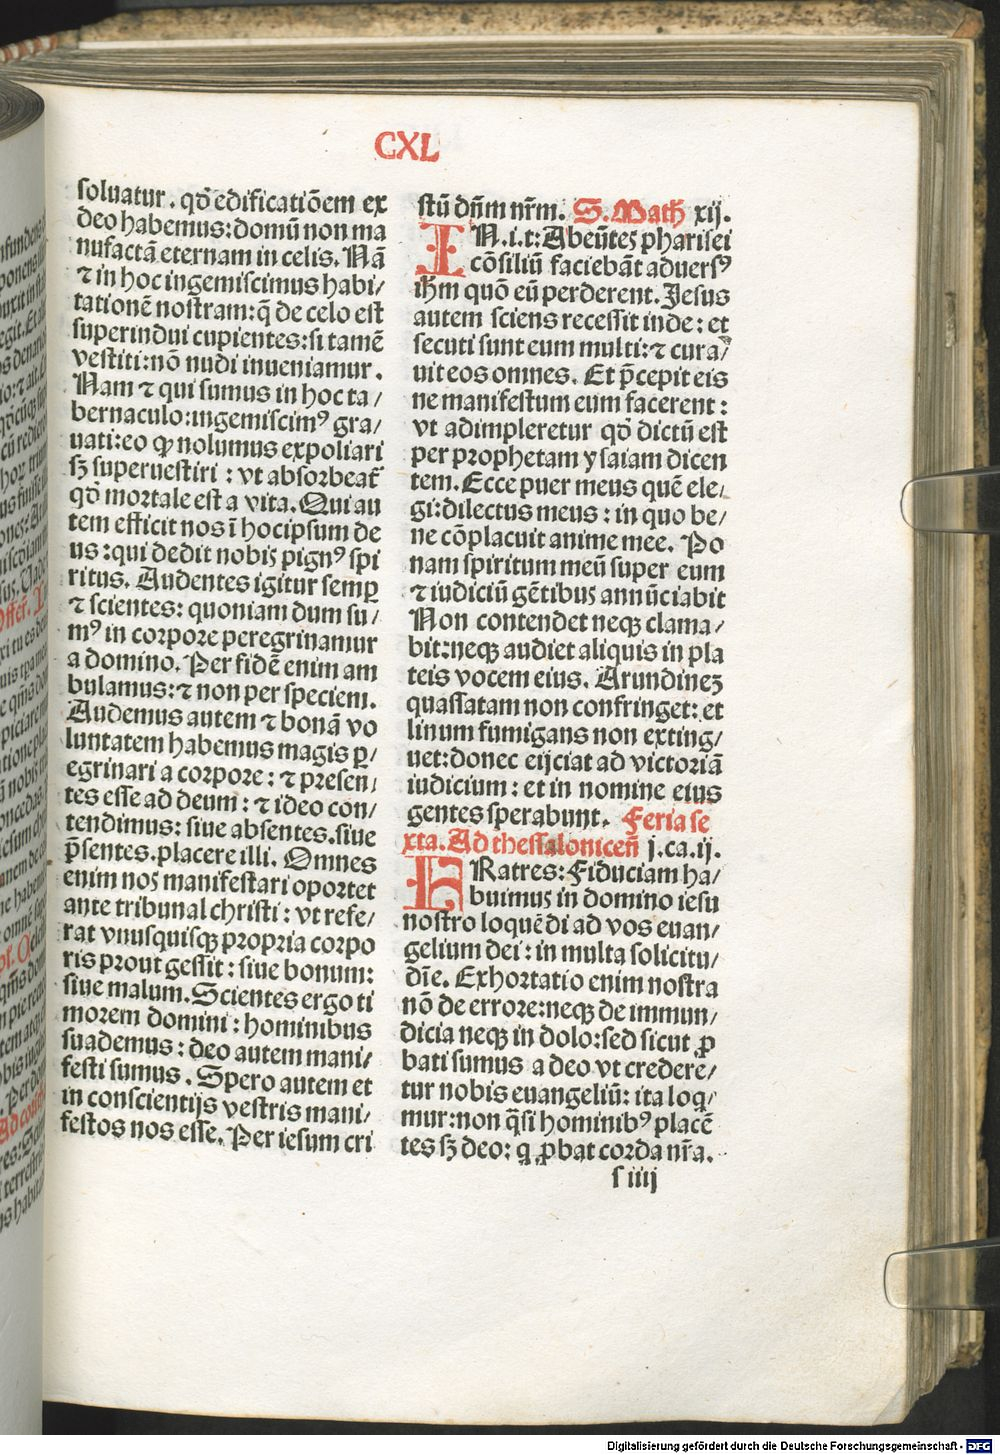 CXL
soluatur. qd̄ edificatiōem ex
deo habemus: domū non ma
nufactā eternam in celis. Nā
⁊ in hoc ingemiscimus habi/
tationē nostram: q̄ de celo est
superindui cupientes: si tamē
vestiti: nō nudi inueniamur.
Nam ⁊ qui sumus in hoc ta/
bernaculo: ingemiscimꝰ gra/
uati: eo ꝙ nolumus expoliari
sꝫ superuestiri: vt absorbeat᷑
qd̄ mortale est a vita. Qui au
tem efficit nos ī hocipsum de
us: qui dedit nobis pignꝰ spi
ritus. Audentes igitur semꝑ
⁊ scientes: quoniam dum su/
mꝰ in corpore peregrinamur
a domino. Per fidē enim am
bulamus: ⁊ non per speciem.
Audemus autem ⁊ bonā vo
luntatem habemus magis ꝑ/
egrinari a corpore: ⁊ presen/
tes esse ad deum: ⁊ ideo con/
tendimus: siue absentes. siue
p̄sentes. placere illi. Omnes
enim nos manifestari oportet
ante tribunal christi: vt refe/
rat vnusquisqꝫ propria corpo
ris prout gessit: siue bonum:
siue malum. Scientes ergo ti
morem domini: hominibus
suademus: deo autem mani/
festi sumus. Spero autem et
in conscientijs vestris mani/
festos nos esse. Per iesum cri
stū dn̄m nr̄m. S. Math xij.
IN. i. t: Abeūtes pharisei
cōsiliū faciebāt aduersꝰ
ih̄m quō eū perderent. Jesus
autem sciens recessit inde: et
secuti sunt eum multi: ⁊ cura/
uit eos omnes. Et p̄cepit eis
ne manifestum eum facerent:
vt adimpleretur qd̄ dictū est
per prophetam ysaiam dicen
tem. Ecce puer meus quē ele/
gi: dilectus meus: in quo be/
ne cōplacuit anime mee. Po
nam spiritum meū super eum
⁊ iudiciū gētibus annūciabit
Non contendet neqꝫ clama/
bit: neqꝫ audiet aliquis in pla
teis vocem eius. Arundineꝫ
quassatam non confringet: et
linum fumigans non exting/
uet: donec eijciat ad victoriā
iudicium: et in nomine eius
gentes sperabunt. Feria se
xta. Ad thessalonicen̄ j. ca. ij.
FRatres: Fiduciam ha/
buimus in domino iesu
nostro loquēdi ad vos euan/
gelium dei: in multa solicitu/
dīe. Exhortatio enim nostra
nō de errore: neqꝫ de immun/
dicia neqꝫ in dolo: sed sicut ꝓ
bati sumus a deo vt credere/
tur nobis euangeliū: ita loq̄/
mur: non q̄si hominibꝰ placē
tes sꝫ deo: q ꝓbat corda nr̄a.
s iiij
Digitalisierung gefördert durch die Deutsche Forschungsgemeinschaft - DFG